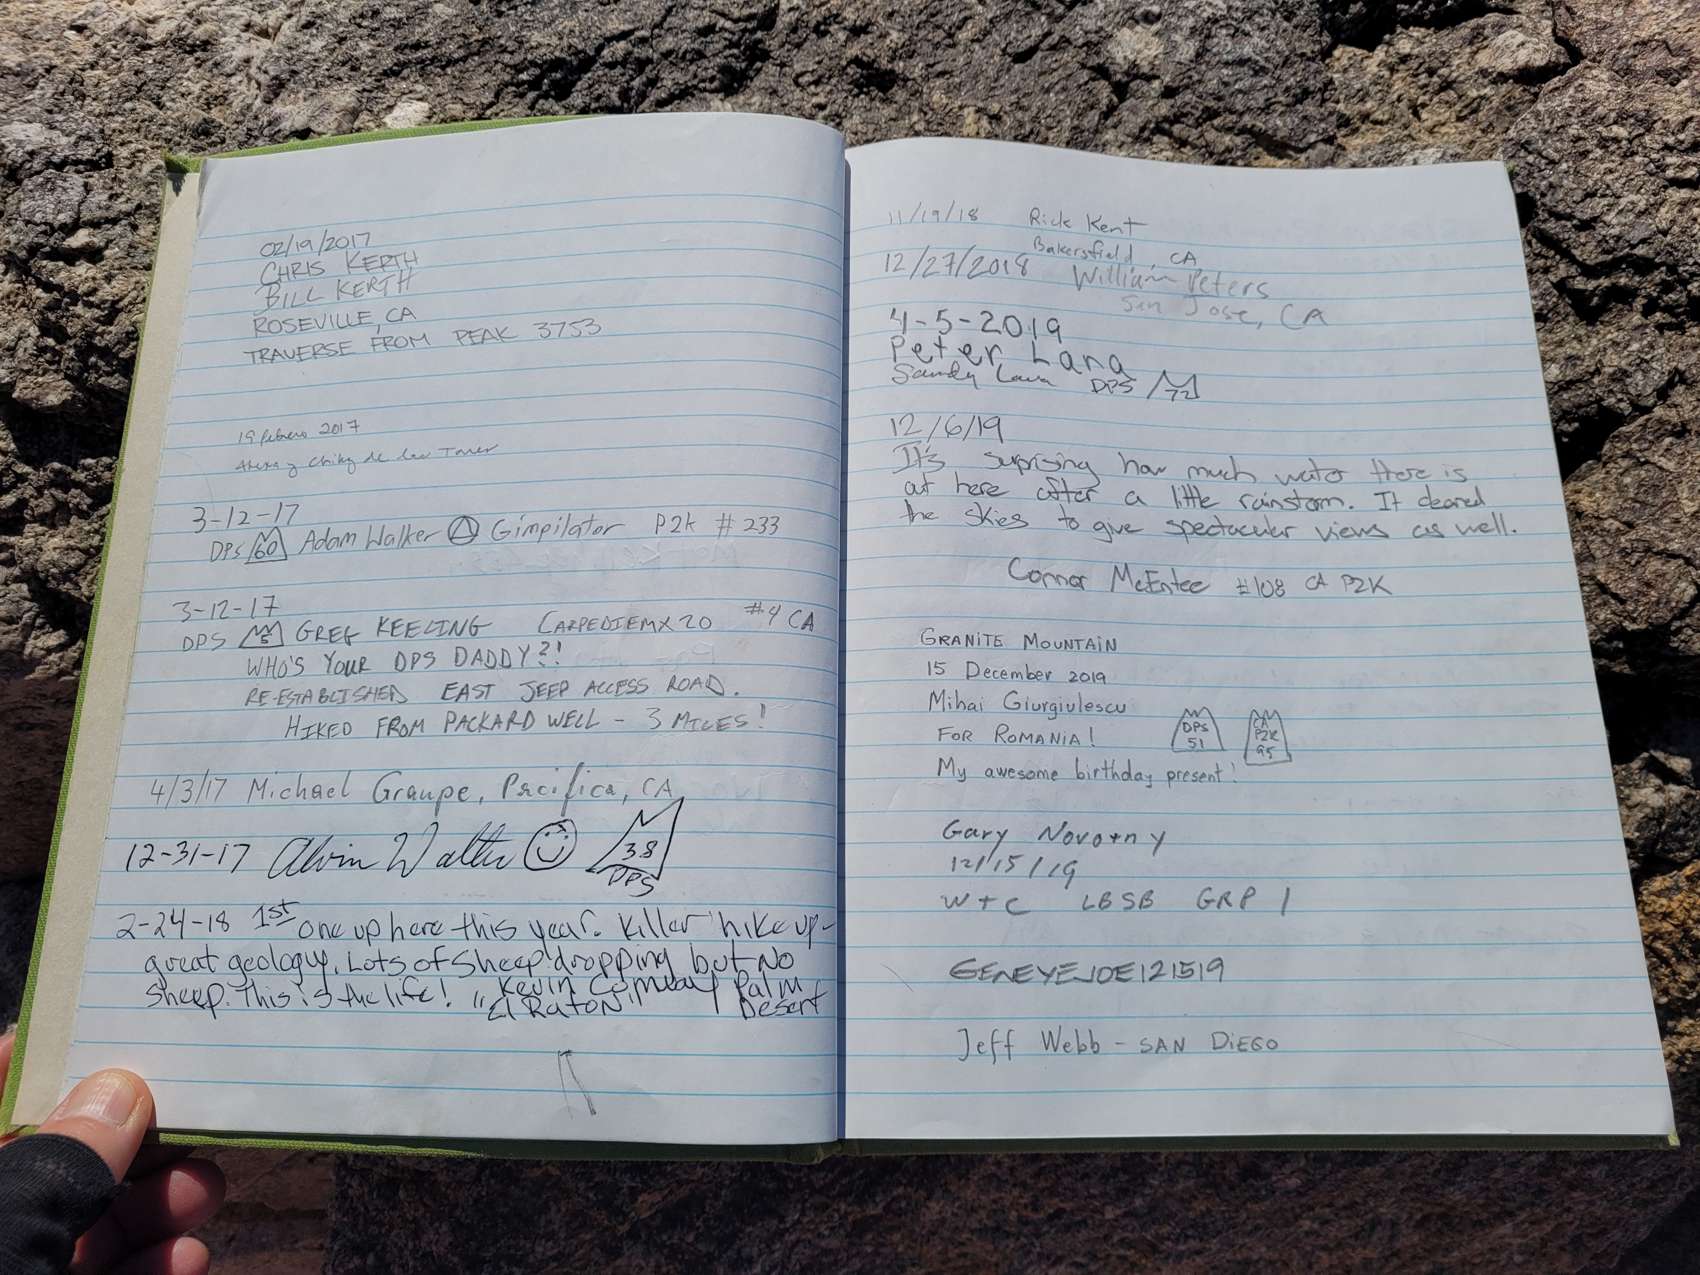 02/19/2017
CHRIS KERTH
BILL KERTH
ROSEVILLE, CA
TRAVERSE FROM PEAK 3753
19 febrero 2017
y de
3-12-17
DPS 60 Adam Walker Gimpilator P2k # 233
3-12-17
DPS 5 GREG KEELING CARPEDIEMX20 #4 CA
WHO'S YOUR DPS DADDY?!
RE-ESTABLISHED EAST JEEP ACCESS ROAD.
HIKED FROM PACKARD WELL - 3 MILES!
4/3/17 Michael Graupe, Pacifica, CA
12-31-17 Alvin Walter 38
DPS
2-24-18 1st one up here this year. Killer hike up-
great geology. Lots of Sheep dropping but No
Sheep. This is the life! Kevin Palm
"El Raton" Desert
11/19/18 Rick Kent
Bakersfield, CA
12/27/2018 William Peters
San Jose, CA
4-5-2019
Peter Lara
Sandy Lara DPS 72
12/6/19
It's suprising how much water there is
out here after a little rainstorm. It cleared
the skies to give spectacular views as well.
Connor McEntee #108 CA P2K
GRANITE MOUNTAIN
15 December 2019
Mihai Giurgiulescu
FOR ROMANIA! DPS 51 CA P2K 95
My awesome birthday present!
Gary Novotny
12/15/19
W+C LBSB GRP 1
GENEYEJOE121519
Jeff Webb - SAN DIEGO